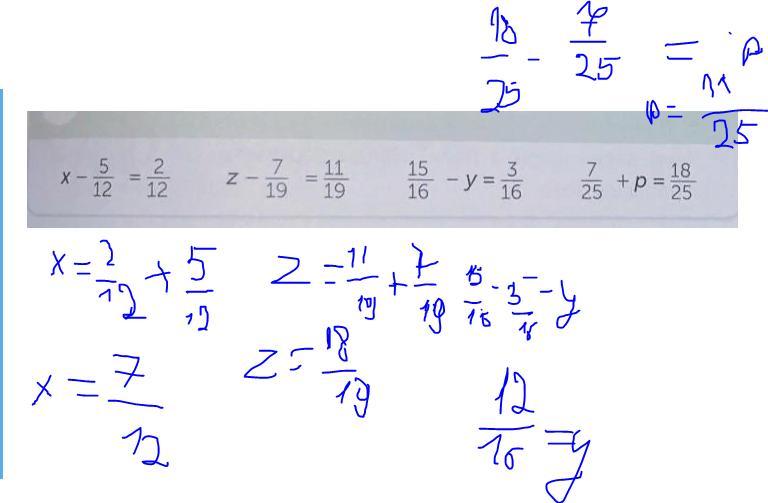 18/25 - 7/25 = p
p = 11/25
x - 5/12 = 2/12 z - 7/19 = 11/19 15/16 - y = 3/16 7/25 + p = 18/25
x = 2/12 + 5/12 z = 11/19 + 7/19 15/16 - 3/16 = y
x = 7/12 z = 18/19 12/16 = y